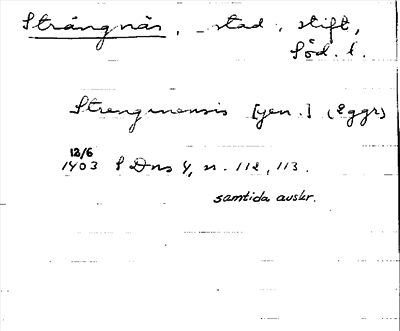 Strängnäs, stad, stift,
Söd. l.
Strengnensis [gen.] (2 ggr)
12/6
1403 SDns 4, n. 112, 113.
samtida avskr.